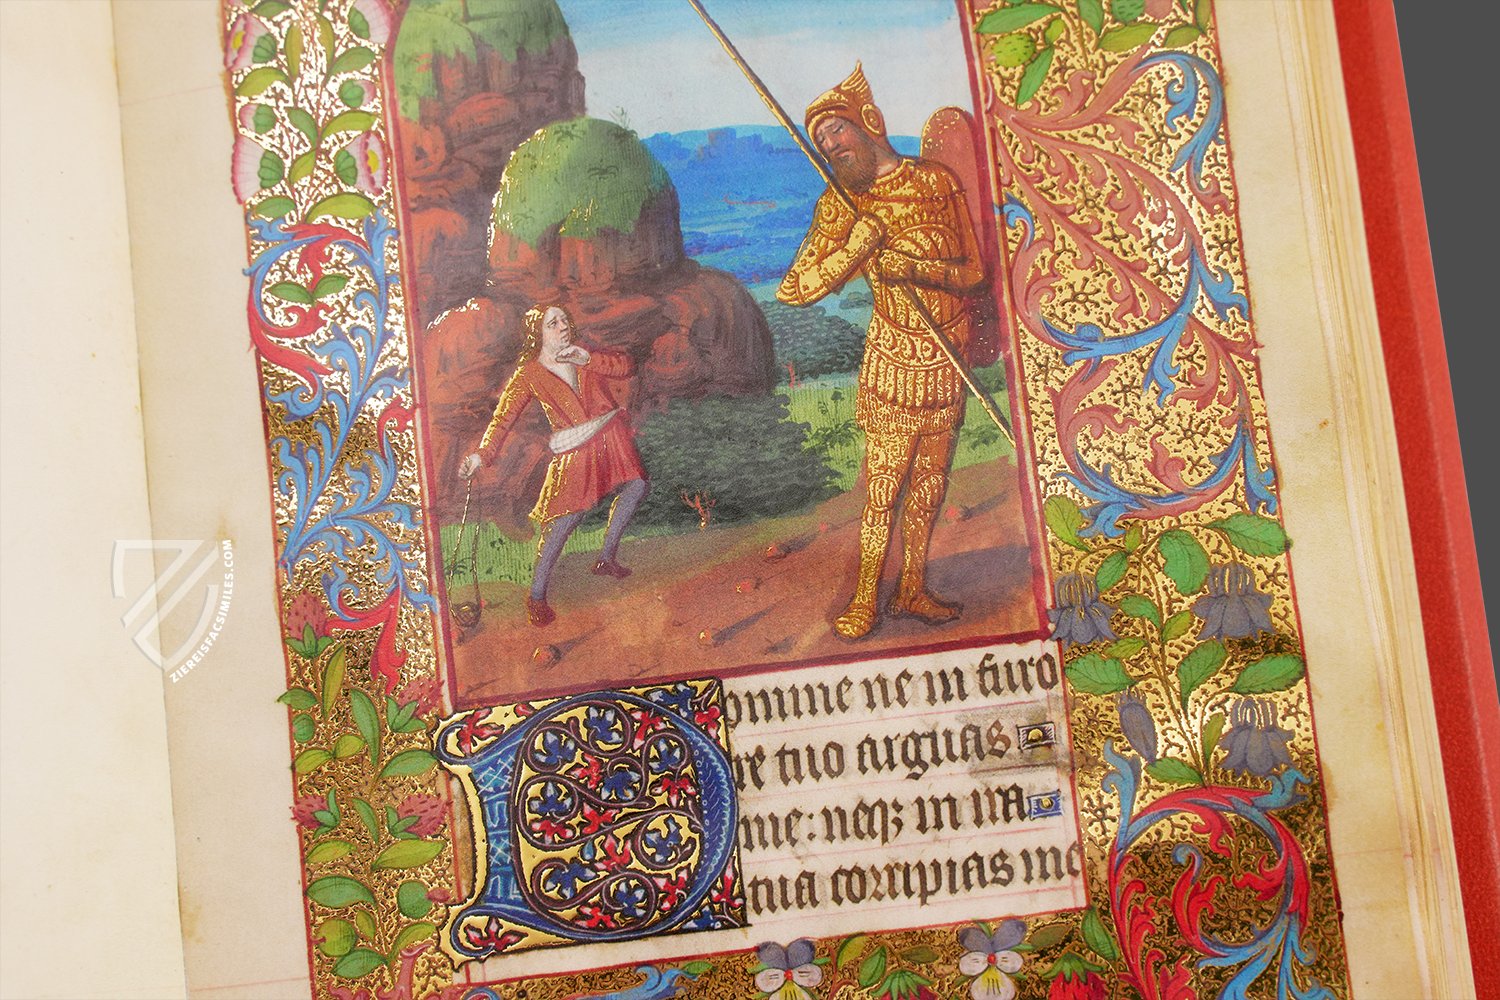 Domine ne in furo
re tuo arguas
me: neqꝫ in ira
tua corripias me
ZIEREISFACSIMILES.COM